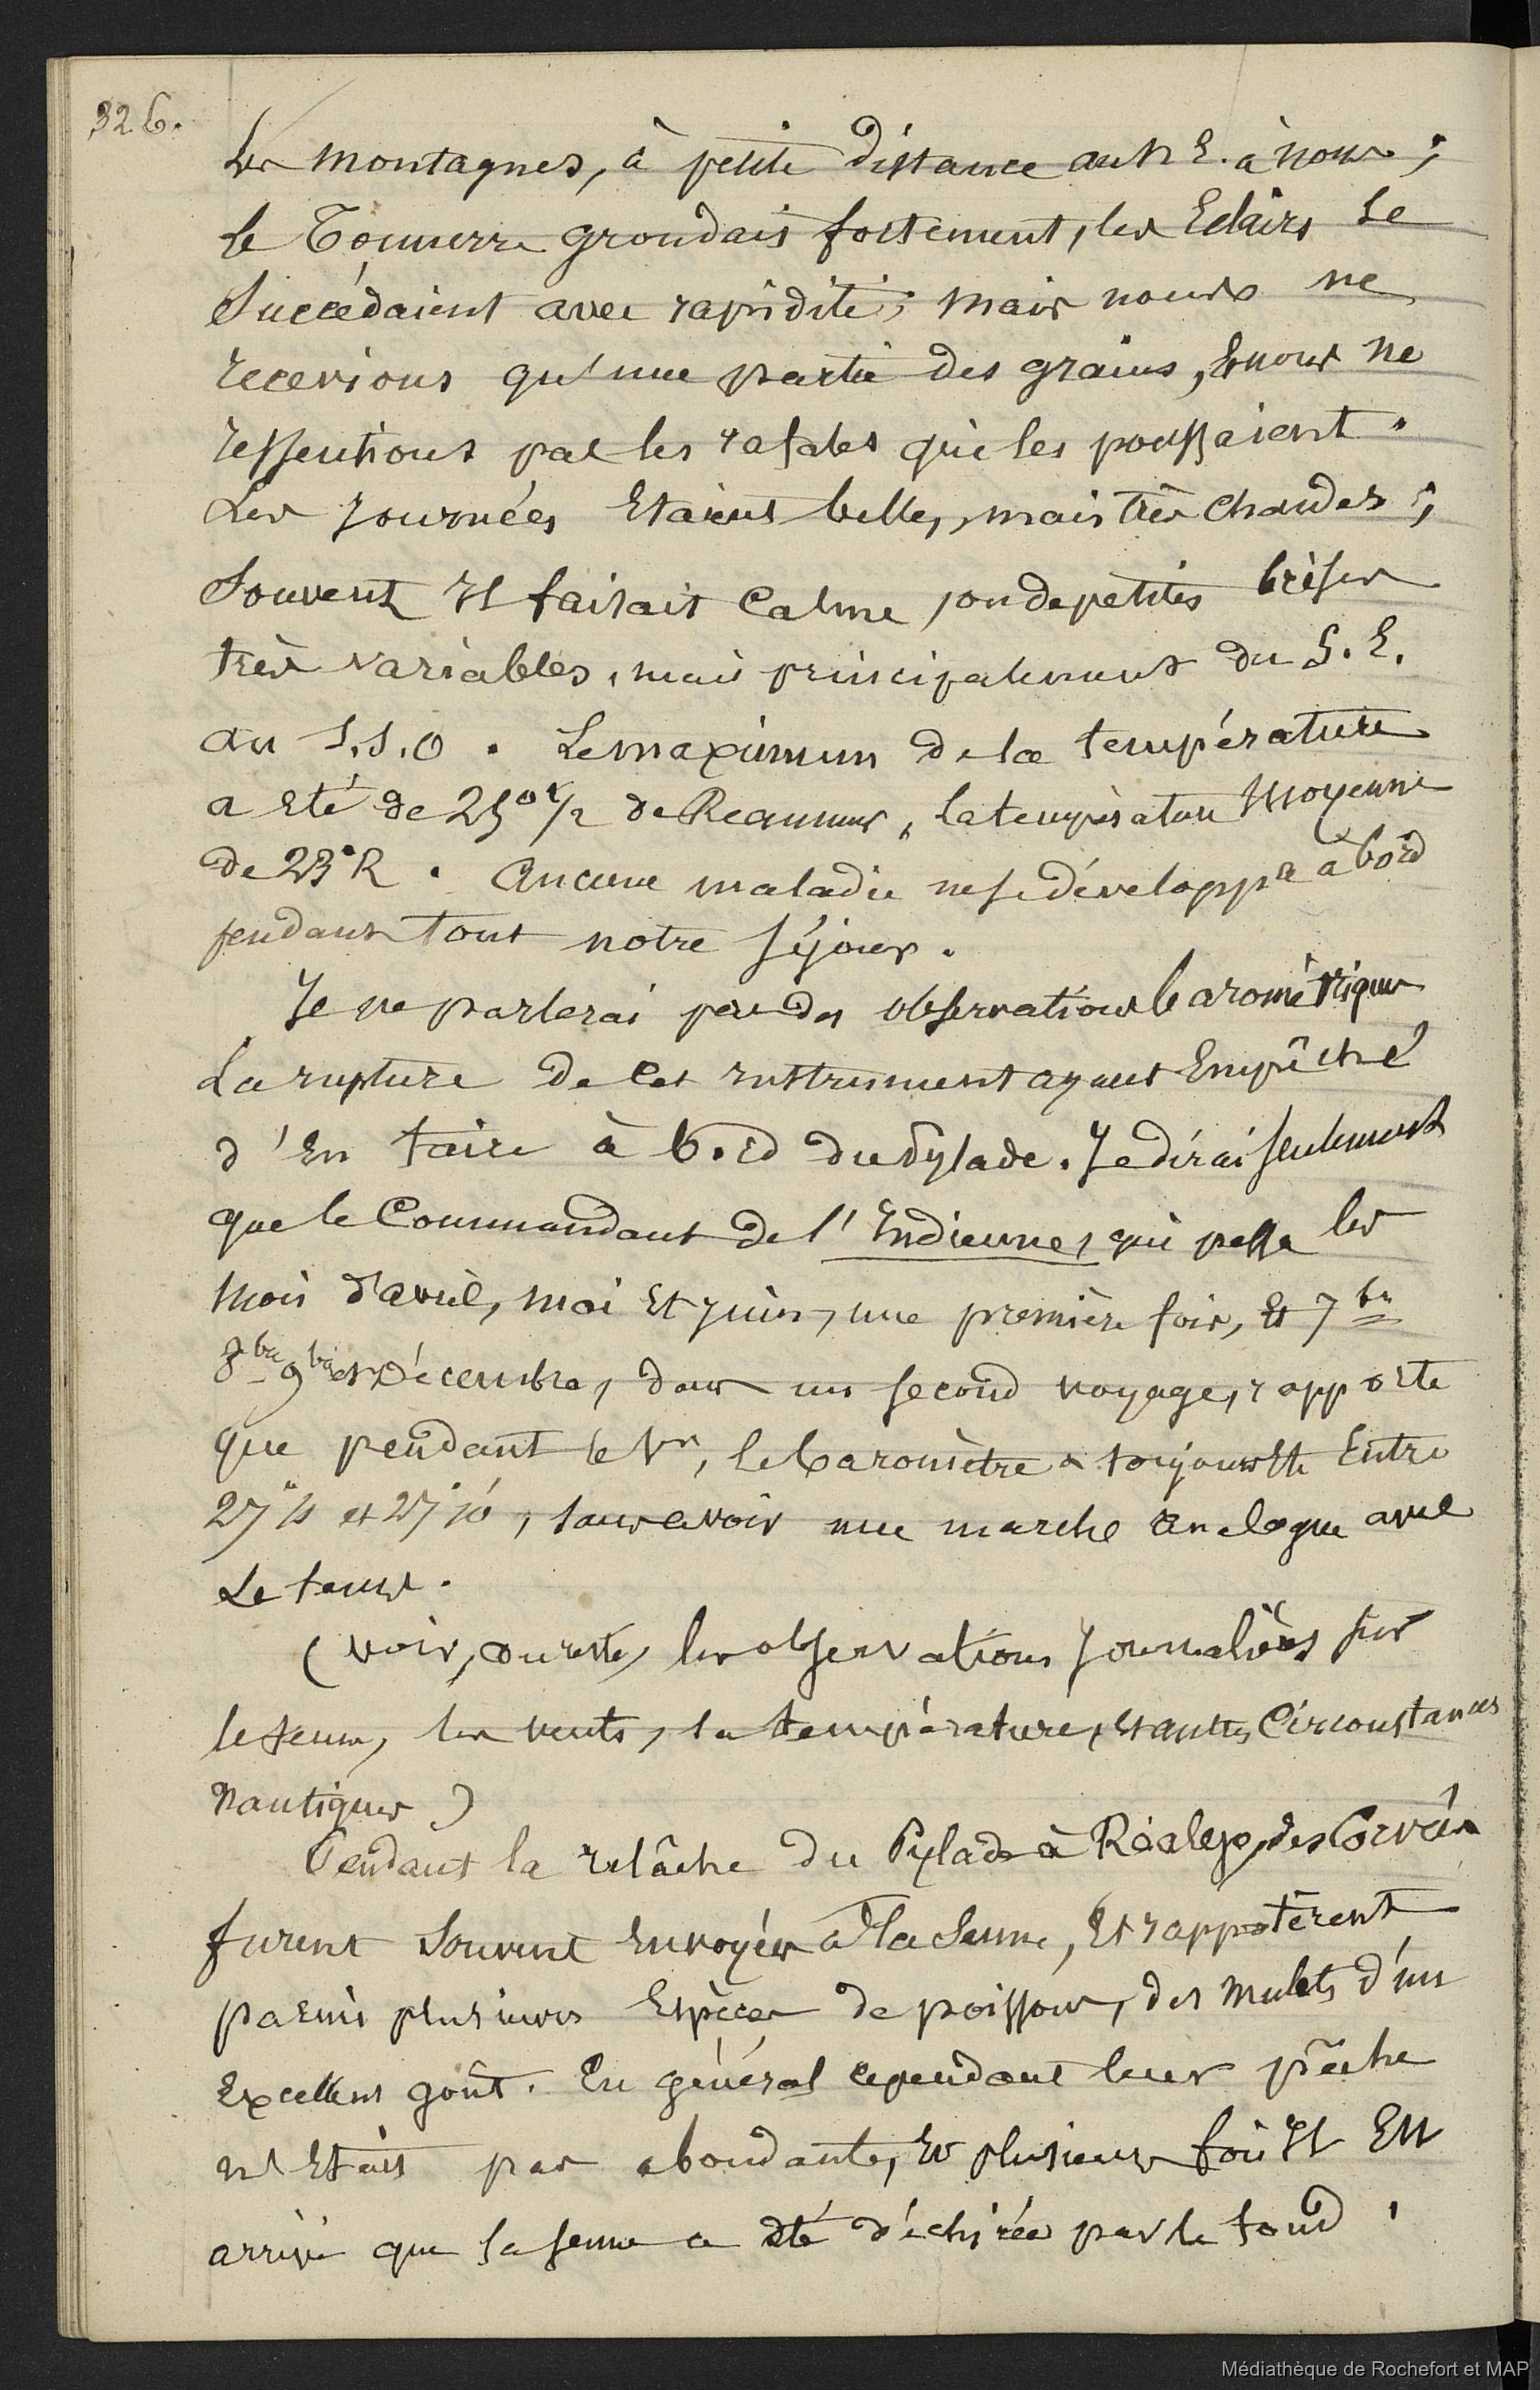 326.
les montagnes, à petite distance au N E. à nous ;
le Tonnerre grondais fortement, les Eclairs se
succédaient avec rapidité ; mais nous ne
recevions qu'une partie des grains, & nous ne
ressentions pas les rafales qui les poussaient.
Les journées Etaient belles, mais très chaudes ;
souvent Il faisait Calme, ou de petites brises
très variables, mais principalement du S. E.
au S.S.O. Le maximum de la température
a Eté de 25° 1/2 de Reaumur, la température Moyenne
de 23° R. Aucune maladie ne se développa a bord
pendant tout notre séjour.
Je ne parlerai pas des observations barométriques
La rupture de cet instrument ayant Empêché
d'En faire à bord du Pylade. Je dirai seulement
que le Commandant de l'Indienne, qui passa les
mois d'avril, mai Et juin, une première fois, Et 7bre
8bre 9bre et Décembre, dans un second voyage, rapporte
que pendant ce , le baromètre a toujours Eté Entre
et , sans avoir une marche analogue avec
Le tems.
(voir, au reste, les observations journalières sur
le tems, les vents, la température, Et autres Circonstances
Nautiques)
Pendant la relâche du Pylade à Réalejo, des Corvées
furent souvent Envoyées à la Senne, Et rapportèrent
parmi plusieurs Espèces de poissons, des mulets d'un
Excellent goût. En général cependant leur pêche
n'Etait pas abondante, Et plusieurs fois Il Est
arrivé que la senne a été déchirée par le fond.
Médiathèque de Rochefort et MAP